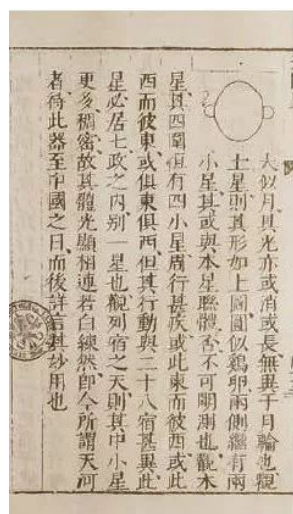 大似月其光亦或消或長無異于月輪也觀
土星則其形如上圖圓似鷄卵兩側繼有兩
小星其或與本星聯體否不可明測也觀木
星其四圍恒有四小星周行甚疾或此東而彼西或此
西而彼東或俱東俱西但其行動與二十八宿甚異此
星必居七政之内別一星也觀列宿之天則其中小星
更多稠密故其體光顯相連若白練然即今所謂天河
者待此器至中國之日而後詳言其妙用也